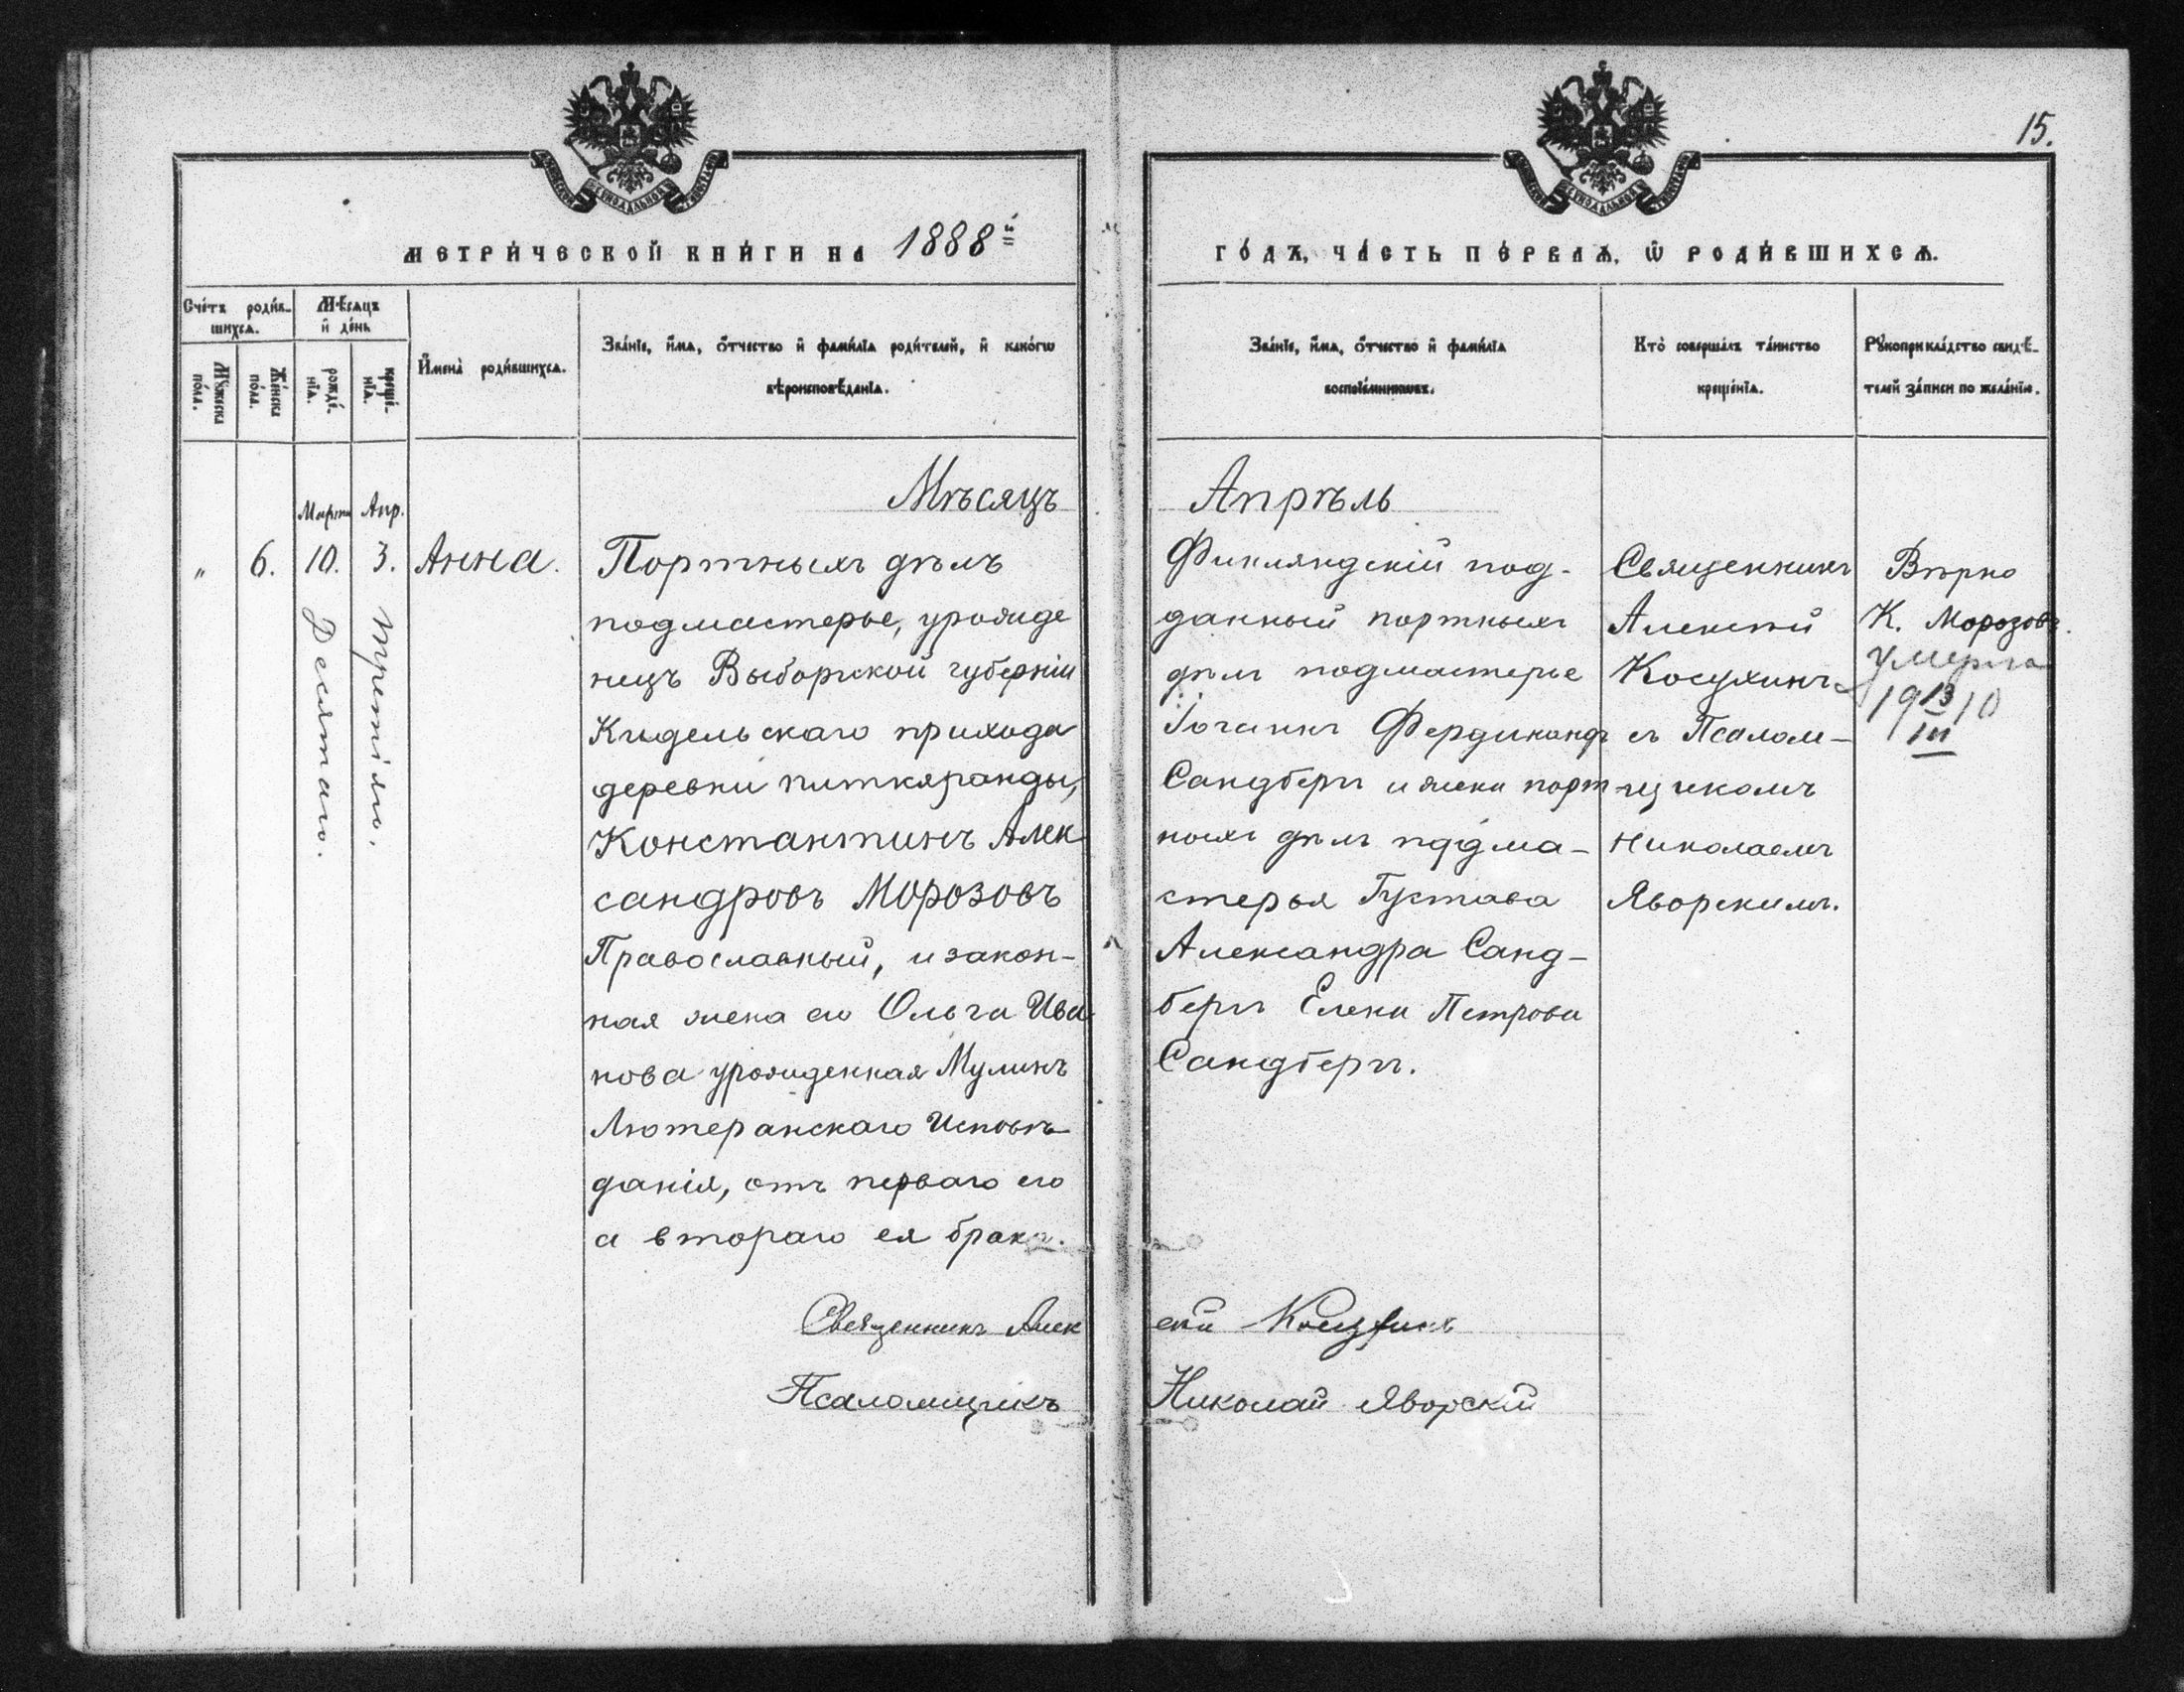 15.
МЕТРИ́ЧЕСКОЙ КНИ́ГИ НА 1888й
ГО́ДЪ, ЧА́СТЬ ПЕ́РВАѦ, Ѿ РОДИ́ВШИХСѦ.
Сче́тъ роди́в-
шихсѧ.
Мѣ́сѧцъ
и҆ де́нь
Мꙋ́жеска
по́ла.
Же́нска
по́ла.
рожде́-
нїѧ.
креще́-
нїѧ.
И҆мена̀ роди́вшихсѧ.
Зва́нїе, и҆́мѧ, ѻ҆́тчество и҆ фами́лїѧ роди́телей, и҆ како́гѡ
вѣроисповѣ́данїѧ.
Зва́нїе, и҆́мѧ, ѻ҆́тчество и҆ фами́лїѧ
воспрїе́мникѡвъ.
Кто̀ соверша́лъ та́инство
креще́нїѧ.
Рꙋкоприкла́дство свидѣ́-
телей за́писи по жела́нїю.
Мѣсяцъ
Апрѣль
Марта Апр.
„ 6. 10. 3. Анна.
Десятаго.
Третіяго.
Портныхъ дѣлъ
подмастерье, урожде
нецъ Выборгской губерніи
Кидельскаго прихода
деревни Питкяранды,
Константинъ Алек
сандровъ Морозовъ
Православный, и закон-
ная жена его Ольга Ива
нова урожденная Мулинъ
Лютеранскаго Исповѣ
данія, отъ перваго его
а втораго ея брака.
Финляндскій под-
данный портныхъ
дѣлъ подмастерье
Іоганнъ Фердинандъ
Сандбергъ и жена порт-
ныхъ дѣлъ подма-
стерья Густава
Александра Санд-
бергъ Елена Петрова
Сандбергъ.
Священникъ
Алексѣй
Косухинъ
съ Псалом-
щикомъ
Николаемъ
Яворскимъ.
Вѣрно
К. Морозовъ.
умерла
19 13/III 10
Священникъ Алексѣй Косухинъ
Псаломщикъ Николай Яворскій